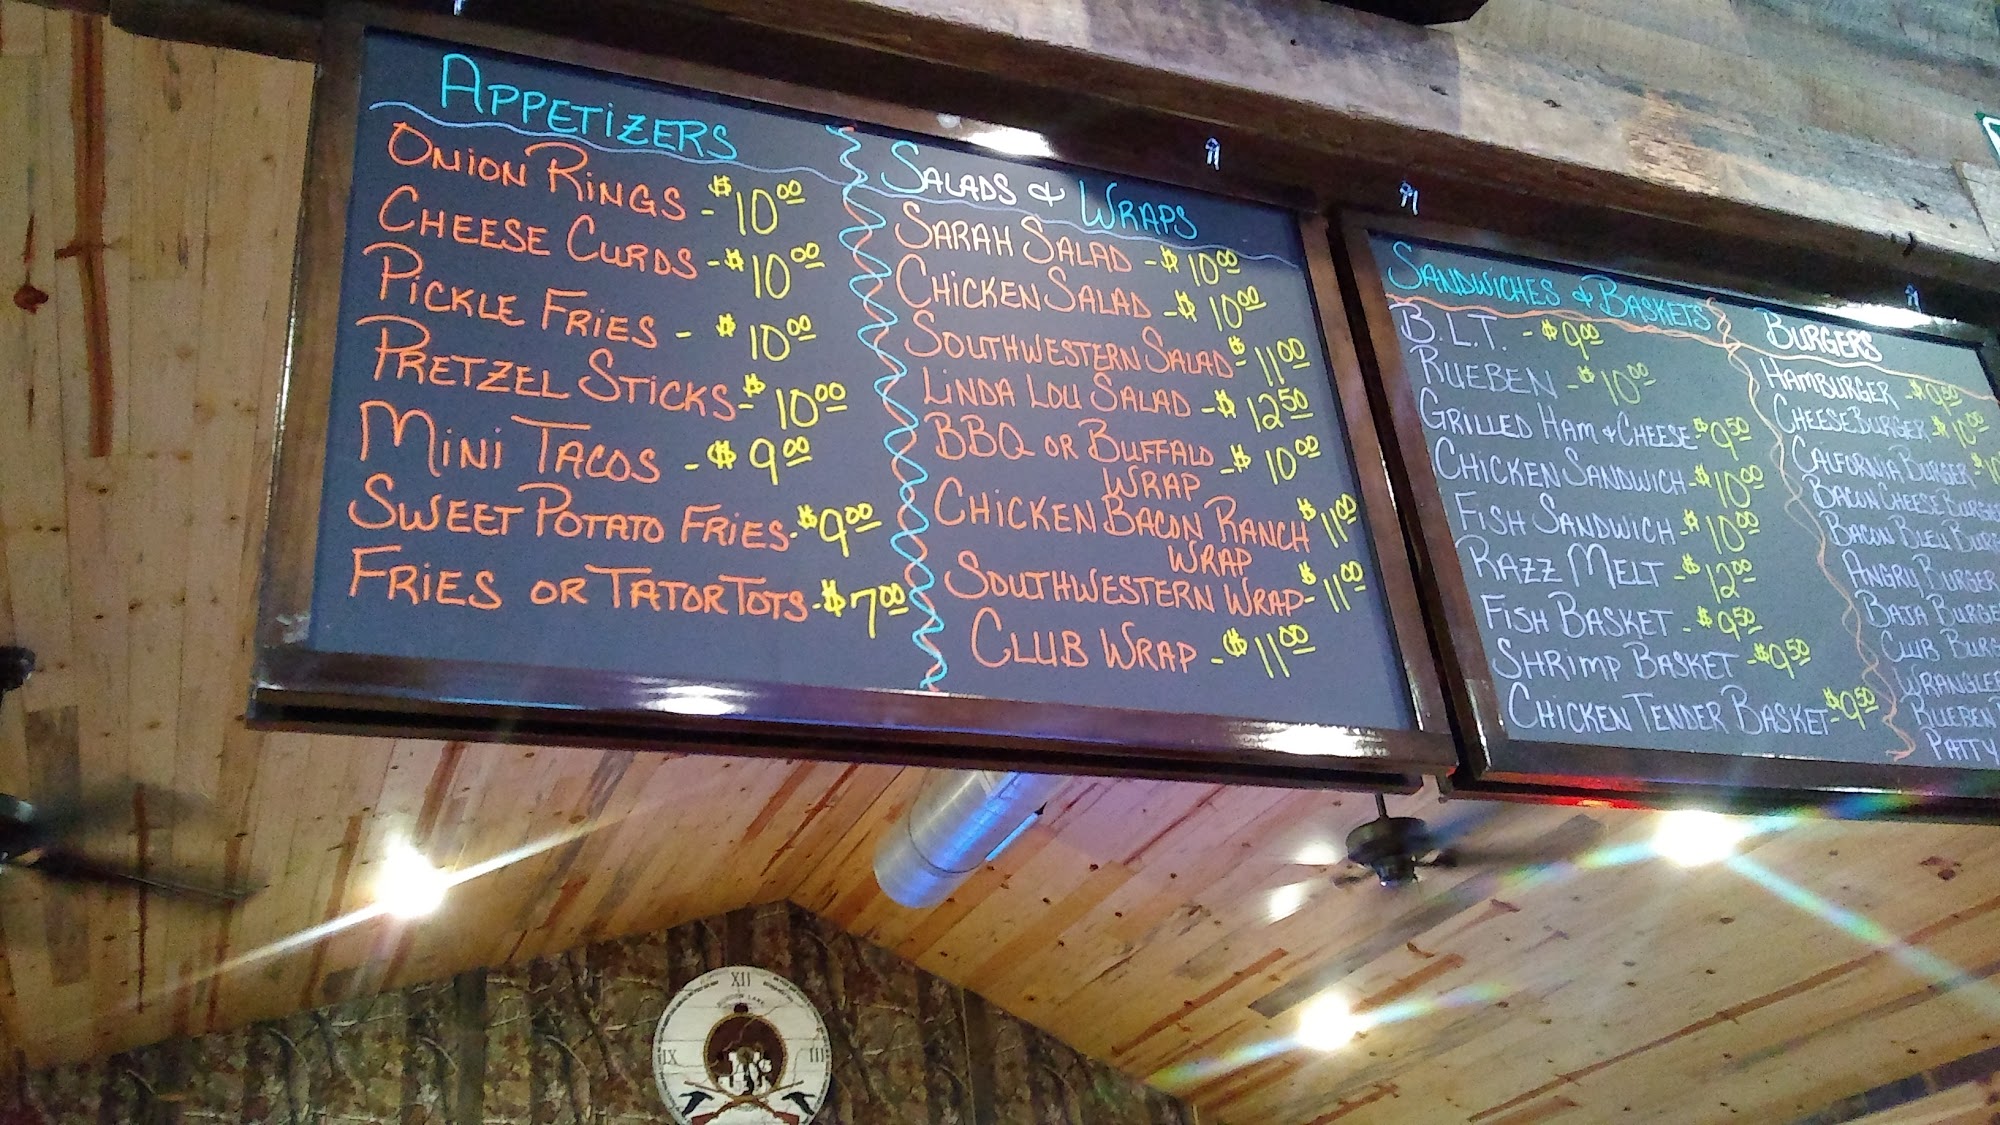 APPETIZERS
ONION RINGS - $10.00
CHEESE CURDS - $10.00
PICKLE FRIES - $10.00
PRETZEL STICKS - $10.00
MINI TACOS - $9.00
SWEET POTATO FRIES - $9.00
FRIES OR TATOR TOTS - $7.00
SALADS & WRAPS
SARAH SALAD - $10.00
CHICKEN SALAD - $10.00
SOUTHWESTERN SALAD $11.00
LINDA LOU SALAD - $12.50
BBQ OR BUFFALO - $10.00
WRAP
CHICKEN BACON RANCH $11.00
WRAP
SOUTHWESTERN WRAP - $11.00
CLUB WRAP - $11.00
SANDWICHES & BASKETS
B.L.T. - $9.00
RUEBEN - $10.00
GRILLED HAM & CHEESE - $9.50
CHICKEN SANDWICH - $10.00
FISH SANDWICH - $10.00
RAZZ MELT - $12.00
FISH BASKET - $9.50
SHRIMP BASKET - $9.50
CHICKEN TENDER BASKET - $9.50
BURGERS
HAMBURGER - $9.50
CHEESEBURGER - $10.00
CALIFORNIA BURGER
BACON CHEESE BURGER
BACON BLEU
ANGRY BURGER
BAJA BURGE
CLUB BURG
WRANGLER
RUEBEN
PATTY
XII
III
IX